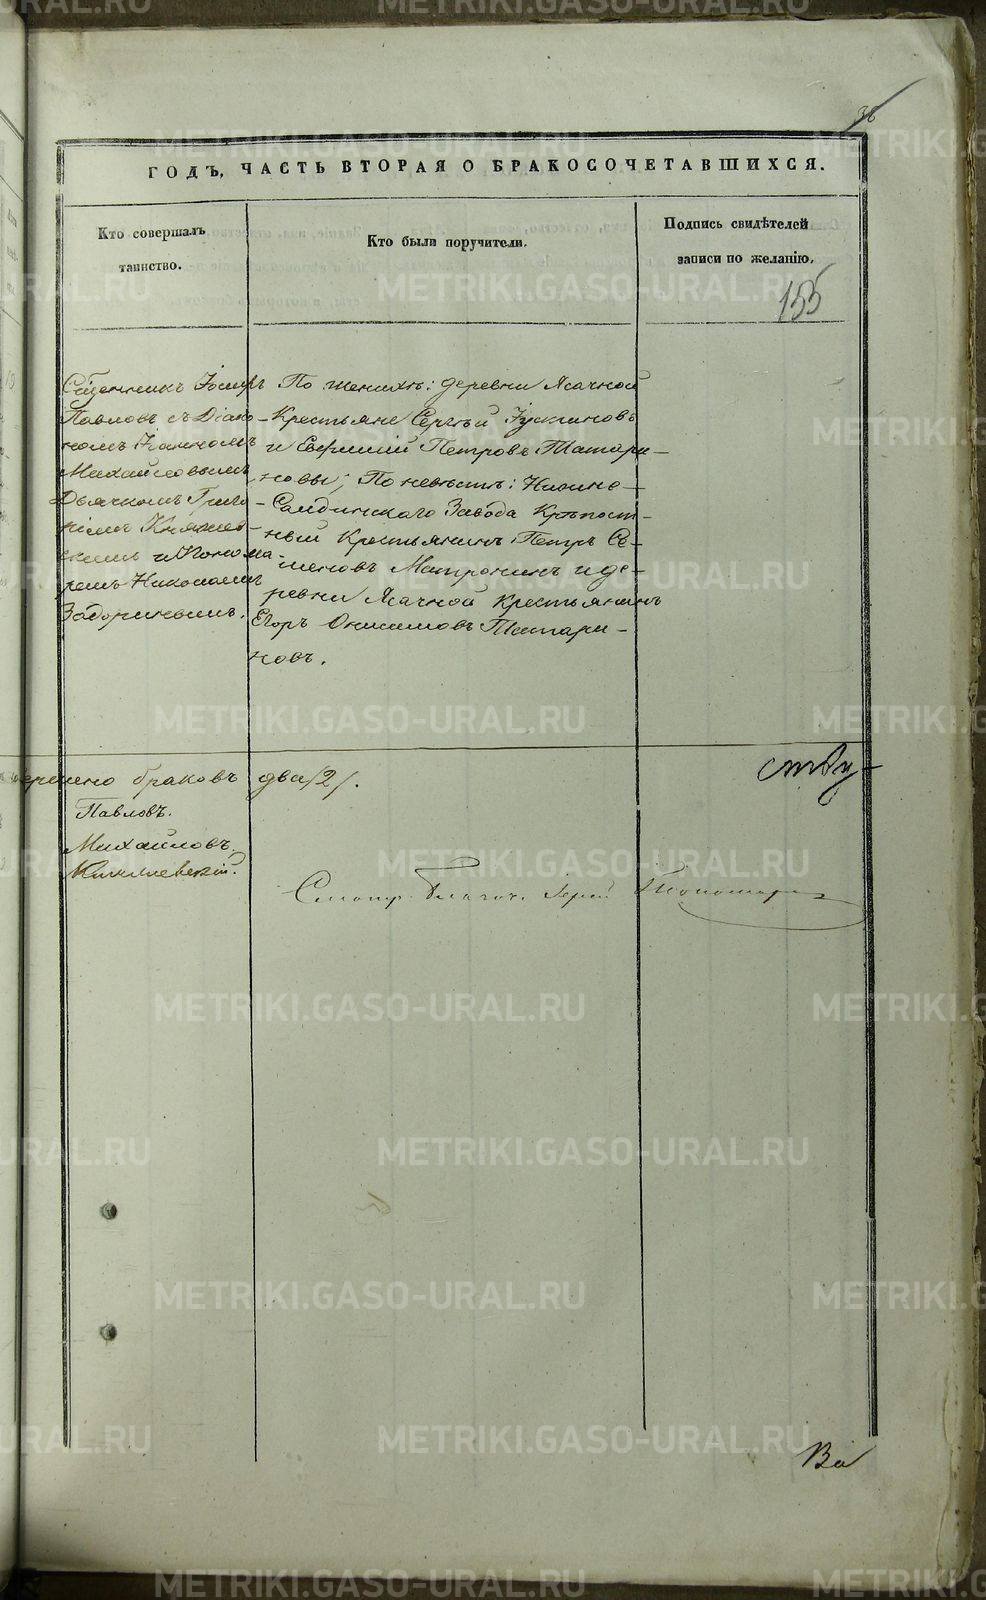 38
ГОДЪ, ЧАСТЬ ВТОРАЯ О БРАКОСОЧЕТАВШИХСЯ.
Кто совершалъ
таинство.
Кто были поручители.
Подпись свидѣтелей
записи по желанію.
155
Священникъ Іосифъ
Павловъ съ Діако-
номъ
Михайловымъ
Дьячкомъ Григо-
ріемъ
и Понома-
ремъ Николаемъ
Задоринымъ.
По женихѣ: деревни Ясачной
Крестьяне Сергѣй Іустиновъ
и Евфимій Петровъ Татари-
новы; По невѣстѣ: Нижне-
Салдинскаго Завода Крѣпост-
ный Крестьянинъ Петръ Се-
меновъ Матронинъ и де-
ревни Ясачной Крестьянинъ
Егоръ Онисимовъ Татари-
новъ.
браковъ два /2/.
Павловъ.
Михайловъ.
Смотр. Благоч. Іерей Пономарев
сту-
Ва
METRIKI.GASO-URAL.RU